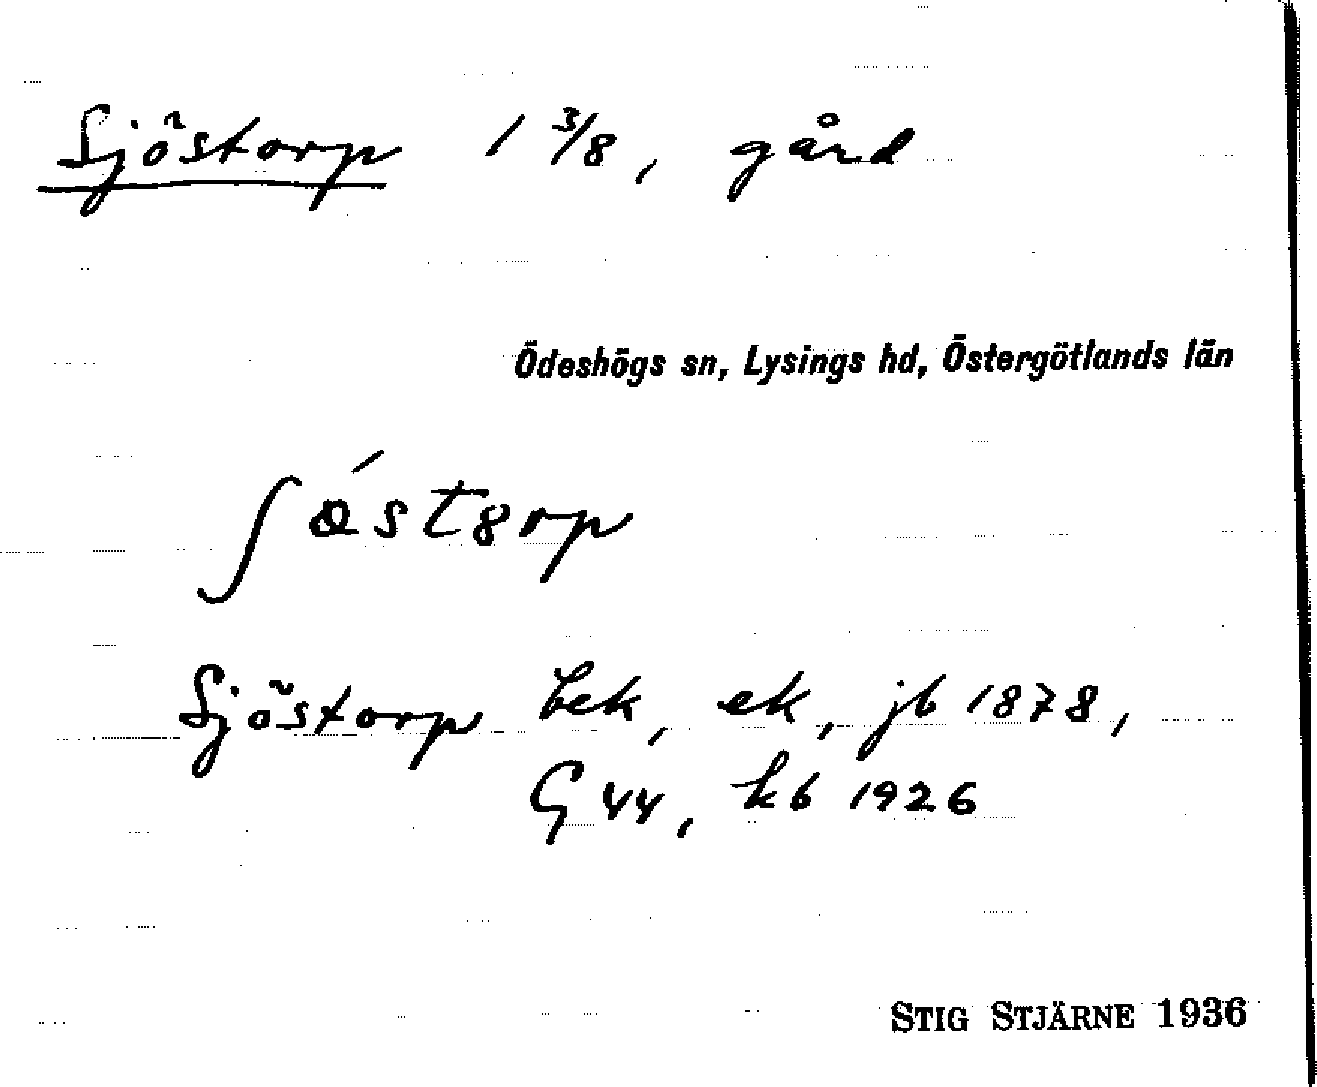 Sjöstorp 1 3/8, gård
Ödeshögs sn, Lysings hd, Östergötlands län
ʃɵ́st8rp
Sjöstorp bek, ek, jb 1878,
G 44, kb 1926
STIG STJÄRNE 1936